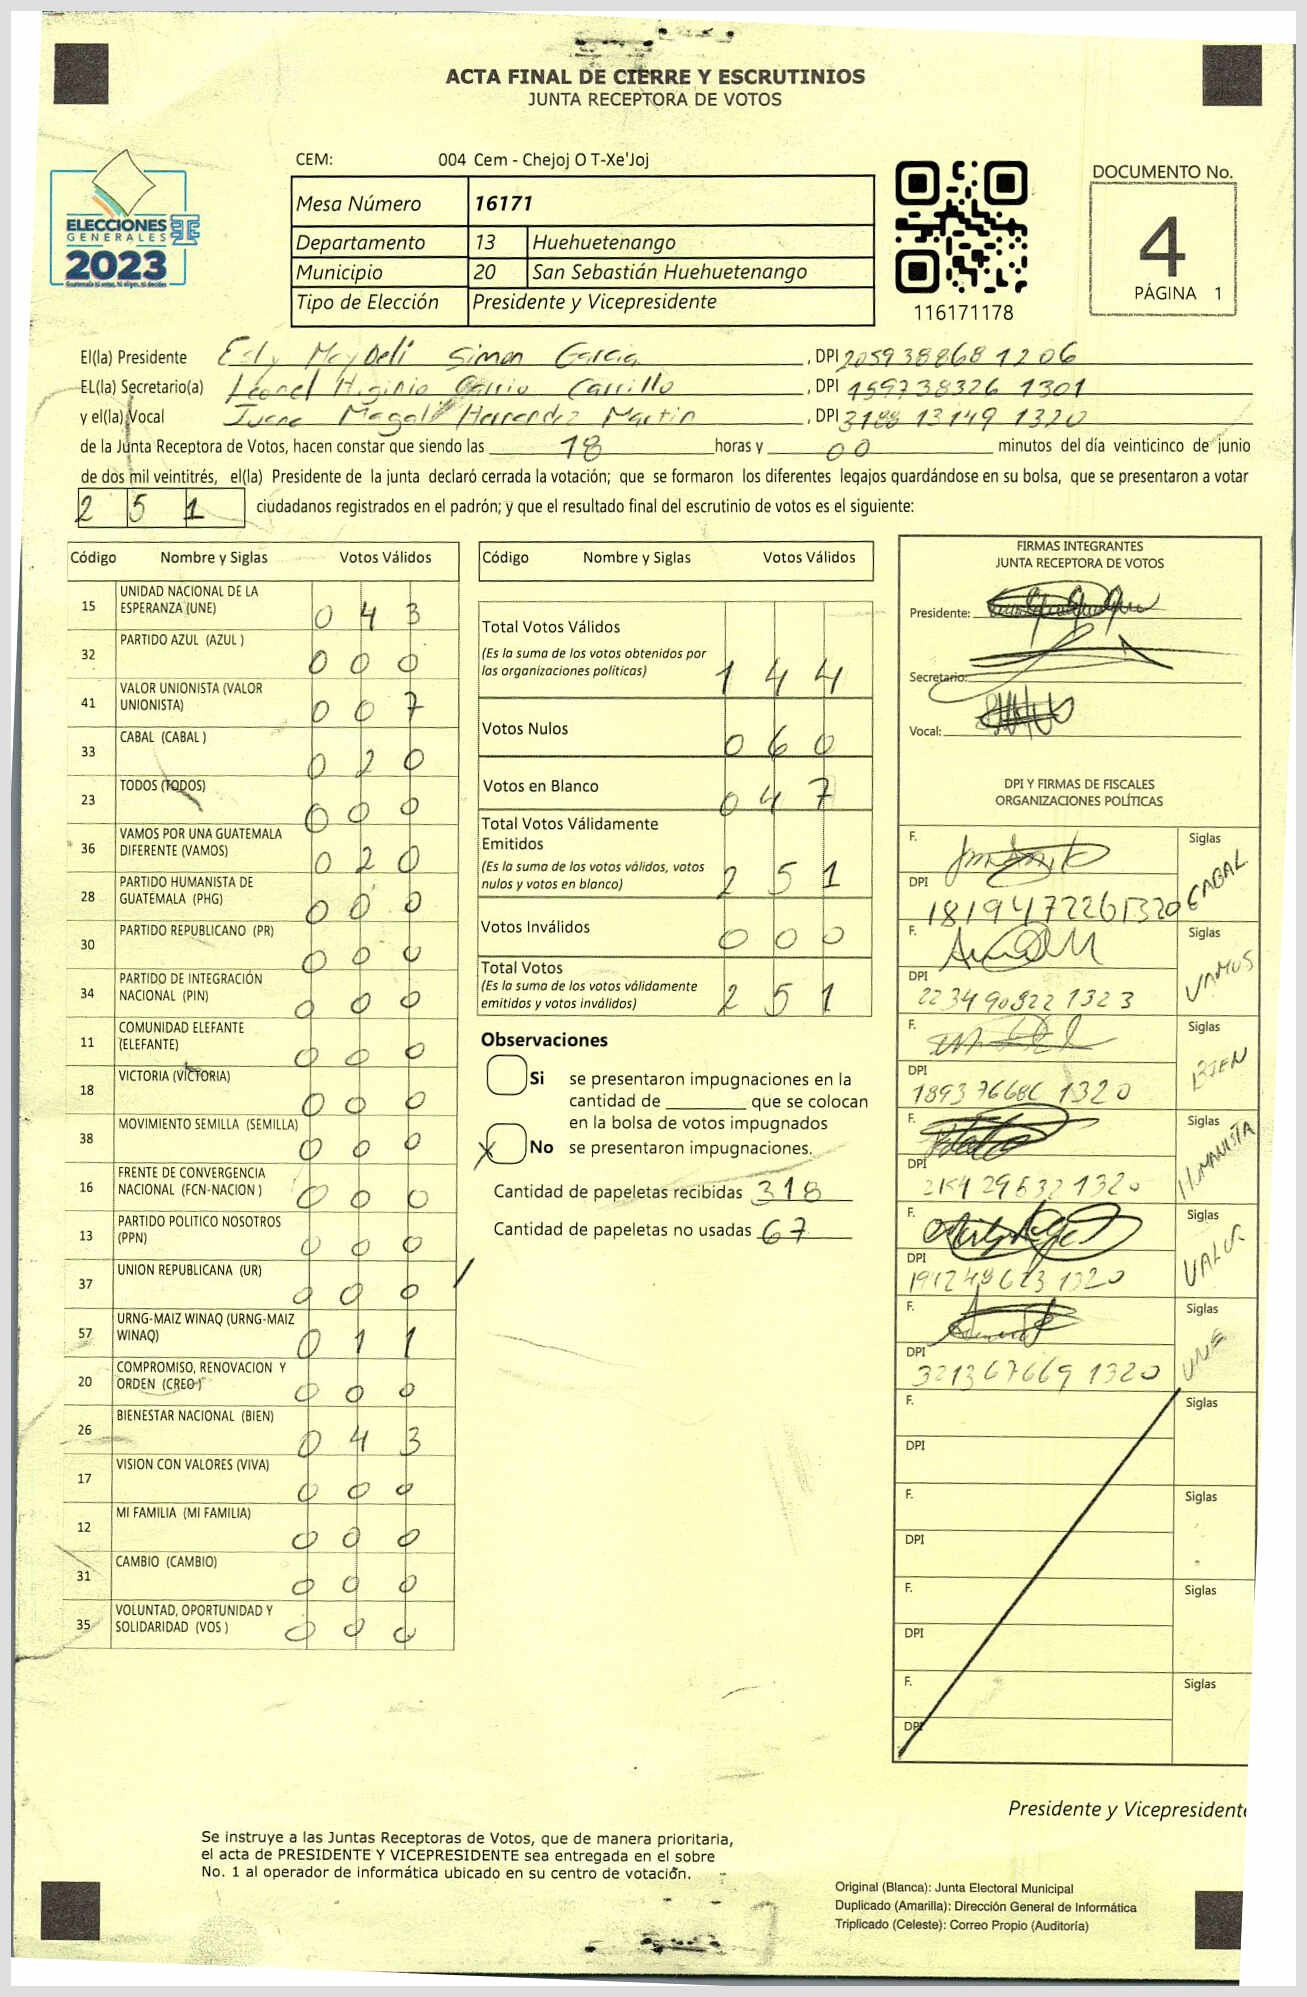 ACTA FINAL DE CIERRE Y ESCRUTINIOS
JUNTA RECEPTORA DE VOTOS
CEM: 004 Cem - Chejoj O T-Xe'Joj
DOCUMENTO No.
4
PÁGINA 1
ELECCIONES
GENERALES
2023
Mesa Número 16171
Departamento 13 Huehuetenango
Municipio 20 San Sebastián Huehuetenango
Tipo de Elección Presidente y Vicepresidente
116171178
El(la) Presidente Esly Maydeli Simon Garcia, DPI 205938868 1206
EL(la) Secretario(a) Leonel Higinio Carrillo, DPI 159738326 1301
y el(la) Vocal Juana Magali Hernandez Martin, DPI 3188 13149 1320
de la Junta Receptora de Votos, hacen constar que siendo las 18 horas y 00 minutos del día veinticinco de junio
de dos mil veintitrés, el(la) Presidente de la junta declaró cerrada la votación; que se formaron los diferentes legajos quardándose en su bolsa, que se presentaron a votar
2 5 1 ciudadanos registrados en el padrón; y que el resultado final del escrutinio de votos es el siguiente:
Código Nombre y Siglas Votos Válidos
15 UNIDAD NACIONAL DE LA ESPERANZA (UNE) 0 4 3
32 PARTIDO AZUL (AZUL ) 0 0 0
41 VALOR UNIONISTA (VALOR UNIONISTA) 0 0 7
33 CABAL (CABAL ) 0 2 0
23 TODOS (TODOS) 0 0 0
36 VAMOS POR UNA GUATEMALA DIFERENTE (VAMOS) 0 2 0
28 PARTIDO HUMANISTA DE GUATEMALA (PHG) 0 0 0
30 PARTIDO REPUBLICANO (PR) 0 0 0
34 PARTIDO DE INTEGRACIÓN NACIONAL (PIN) 0 0 0
11 COMUNIDAD ELEFANTE (ELEFANTE) 0 0 0
18 VICTORIA (VICTORIA) 0 0 0
38 MOVIMIENTO SEMILLA (SEMILLA) 0 0 0
16 FRENTE DE CONVERGENCIA NACIONAL (FCN-NACION ) 0 0 0
13 PARTIDO POLITICO NOSOTROS (PPN) 0 0 0
37 UNION REPUBLICANA (UR) 0 0 0
57 URNG-MAIZ WINAQ (URNG-MAIZ WINAQ) 0 1 1
20 COMPROMISO, RENOVACION Y ORDEN (CREO ) 0 0 0
26 BIENESTAR NACIONAL (BIEN) 0 4 3
17 VISION CON VALORES (VIVA) 0 0 0
12 MI FAMILIA (MI FAMILIA) 0 0 0
31 CAMBIO (CAMBIO) 0 0 0
35 VOLUNTAD, OPORTUNIDAD Y SOLIDARIDAD (VOS ) 0 0 0
Código Nombre y Siglas Votos Válidos
Total Votos Válidos 1 4 4
(Es la suma de los votos obtenidos por
las organizaciones políticas)
Votos Nulos 0 6 0
Votos en Blanco 0 4 7
Total Votos Válidamente
Emitidos 2 5 1
(Es la suma de los votos válidos, votos
nulos y votos en blanco)
Votos Inválidos 0 0 0
Total Votos 2 5 1
(Es la suma de los votos válidamente
emitidos y votos inválidos)
Observaciones
Si se presentaron impugnaciones en la
cantidad de ________ que se colocan
en la bolsa de votos impugnados
X No se presentaron impugnaciones.
Cantidad de papeletas recibidas 318
Cantidad de papeletas no usadas 67
FIRMAS INTEGRANTES
JUNTA RECEPTORA DE VOTOS
Presidente:
Secretario:
Vocal:
DPI Y FIRMAS DE FISCALES
ORGANIZACIONES POLÍTICAS
F. Siglas CABAL
DPI 1819472261320
F. Siglas VAMOS
DPI 2234 90822 1323
F. Siglas BIEN
DPI 1893 76686 1320
F. Siglas HUMANISTA
DPI 1320
F. Siglas VALOR
DPI 1320
F. Siglas UNE
DPI 321367669 1320
F. Siglas
DPI
F. Siglas
DPI
F. Siglas
DPI
F. Siglas
DPI
Presidente y Vicepresidente
Se instruye a las Juntas Receptoras de Votos, que de manera prioritaria,
el acta de PRESIDENTE Y VICEPRESIDENTE sea entregada en el sobre
No. 1 al operador de informática ubicado en su centro de votación.
Original (Blanca): Junta Electoral Municipal
Duplicado (Amarilla): Dirección General de Informática
Triplicado (Celeste): Correo Propio (Auditoría)